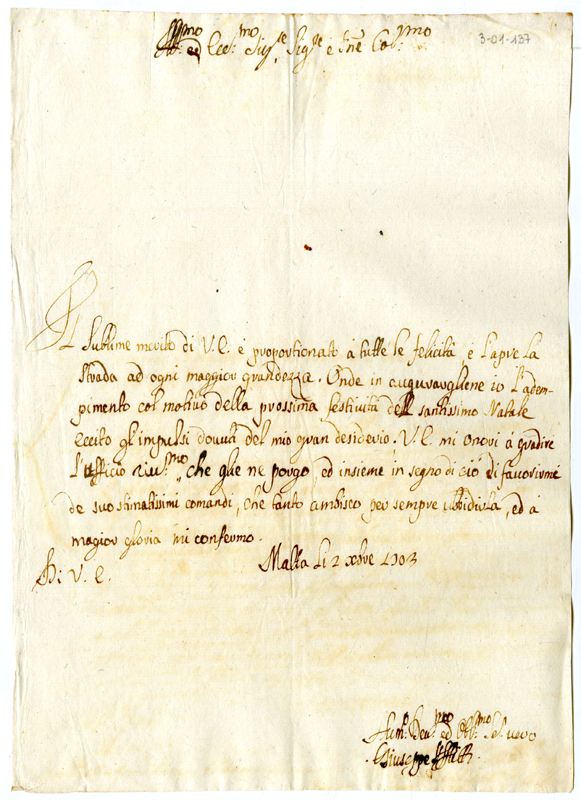 Ill:mo ed Ecc:mo Sig:re Sig:re e Pne Col:mo
3-01-137
Il sublime merito di V.E. è proportionato à tutte le felicità e l'apre la
strada ad ogni maggior grandezza. Onde in augurargliene io l'adem-
pimento col motivo della prossima festività del santissimo Natale
eccito gl'impulsi dovuti del mio gran desiderio. V.E. mi onori à gradire
l'ufficio riv:mo che glie ne porgo, ed insieme in segno di ciò di favorirmi
de suoi stimatissimi comandi, che tanto ambisco per sempre ubbidirla, ed à
magior gloria mi confermo.
Di V.E. Malta li 2 xbre 1703
Hum:o Dev:mo ed Obl:mo Se:r vero
Giuseppe